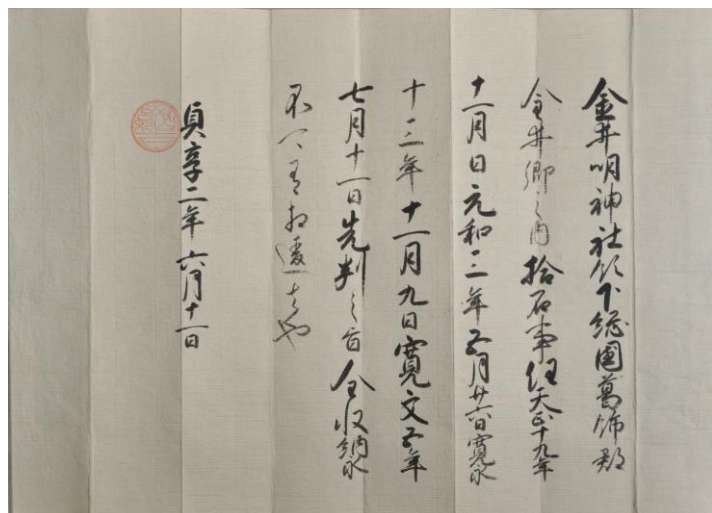 金井明神社領下総國葛飾郡
金井郷之内拾石事任天正十九年
十一月日元和三年五月廿六日寛永
十三年十一月九日寛文五年
七月十一日先判之旨全収納永
不可有相違者也
貞享二年六月十一日